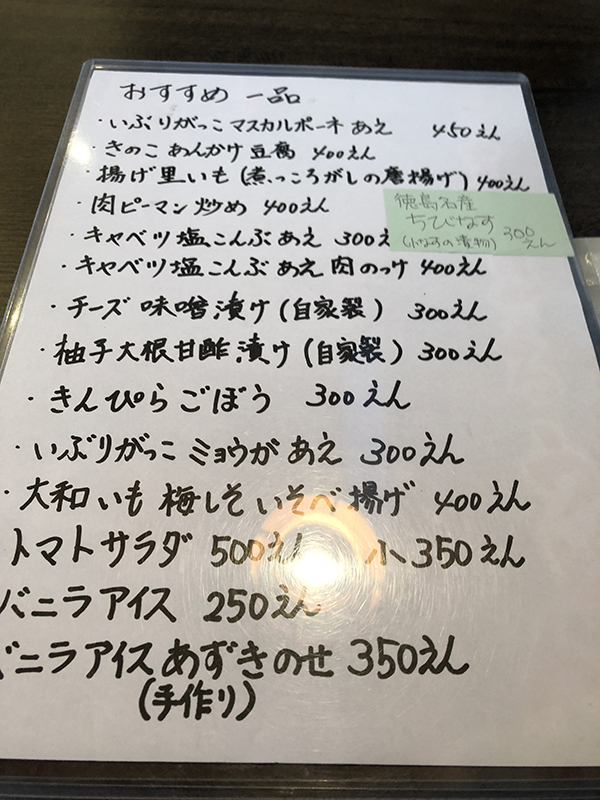 おすすめ 一品
・いぶりがっこ マスカルポーネ あえ 450えん
・きのこ あんかけ 豆腐 400えん
・揚げ里いも(煮っころがしの唐揚げ) 400えん
・肉ピーマン 炒め 400えん
徳島名産
ちびなす
(小なすの漬物) 300えん
・キャベツ塩こんぶあえ 300え
・キャベツ塩こんぶ あえ 肉のっけ 400えん
・チーズ 味噌漬け(自家製) 300えん
・柚子大根甘酢漬け(自家製) 300えん
・きんぴらごぼう 300えん
・いぶりがっこ ミョウが あえ 300えん
・大和いも 梅しそ いそべ 揚げ 400えん
トマトサラダ 500えん 小 350えん
バニラアイス 250えん
バニラアイスあずきのせ 350えん
(手作り)